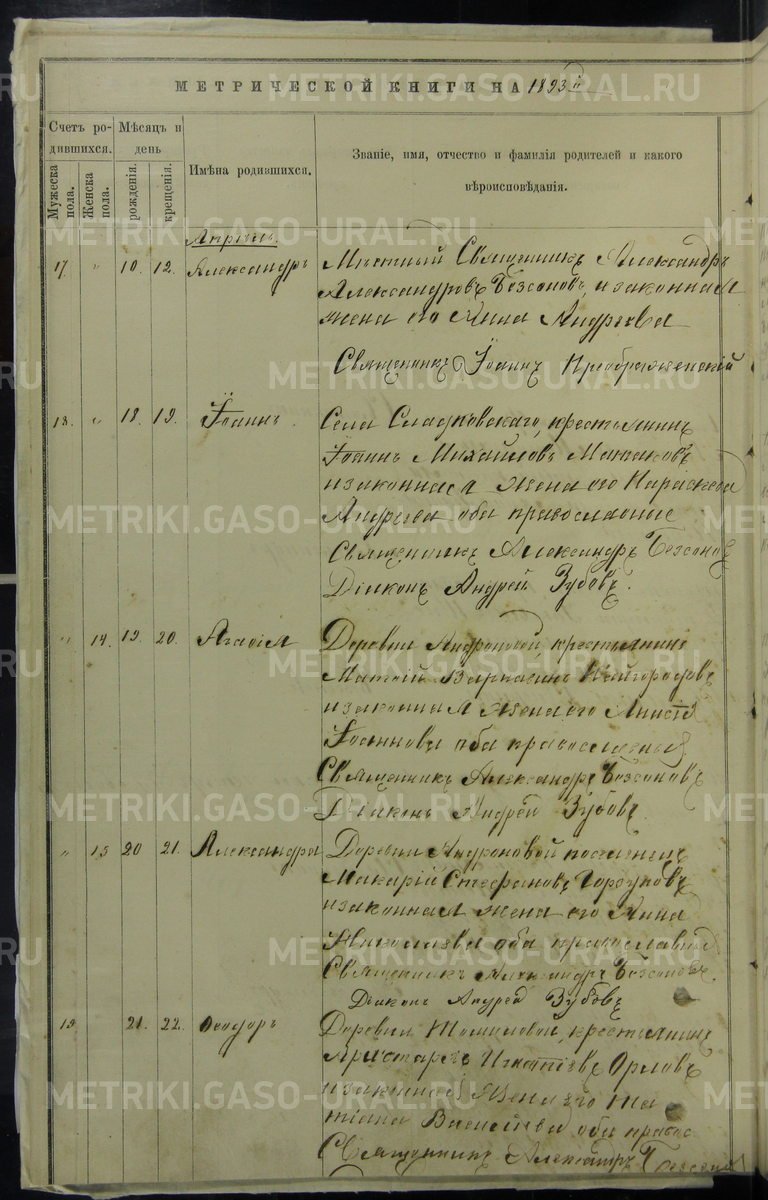 МЕТРИЧЕСКОЙ КНИГИ НА 1893 й
Счетъ ро-
дившихся.
Мѣсяцъ и
день
Мужеска
пола.
Женска
пола.
рожденія.
крещенія.
Имѣна родившихся.
Званіе, имя, отчество и фамилія родителей и какого
вѣроисповѣданія.
Апрѣль.
17 " 10. 12. Александръ Мѣстный Священникъ Александръ
Александровъ Безсоновъ, и законная
жена его Анна Андреева
Священникъ Іоаннъ Преображенскій
18. " 18. 19. Іоаннъ. Села Сладковскаго, крестьянинъ
Іоаннъ Михайловъ
и законная жена его Параскева
Андреева оба православные
Священникъ Александръ Безсоновъ
Діаконъ Андрей Зубовъ.
" 14. 19. 20. Агафія Деревни Андроновой крестьянинъ
и законная жена его
Іоаннова оба православныя
Священникъ Александръ Безсоновъ
Діаконъ Андрей Зубовъ.
" 15 20 21. Александра Деревни Андроновой
Макарій Стефановъ Горбуновъ
и законная жена его Анна
Николаева оба православные
Священникъ Александръ Безсоновъ.
Діаконъ Андрей Зубовъ
19 21. 22. Ѳеодоръ Деревни Томиловой, крестьянинъ
Аристархъ Игнатіевъ Орловъ
и законная жена его Та
тіана Васильева оба правос
Священникъ Александръ Безсоновъ
METRIKI.GASO-URAL.RU